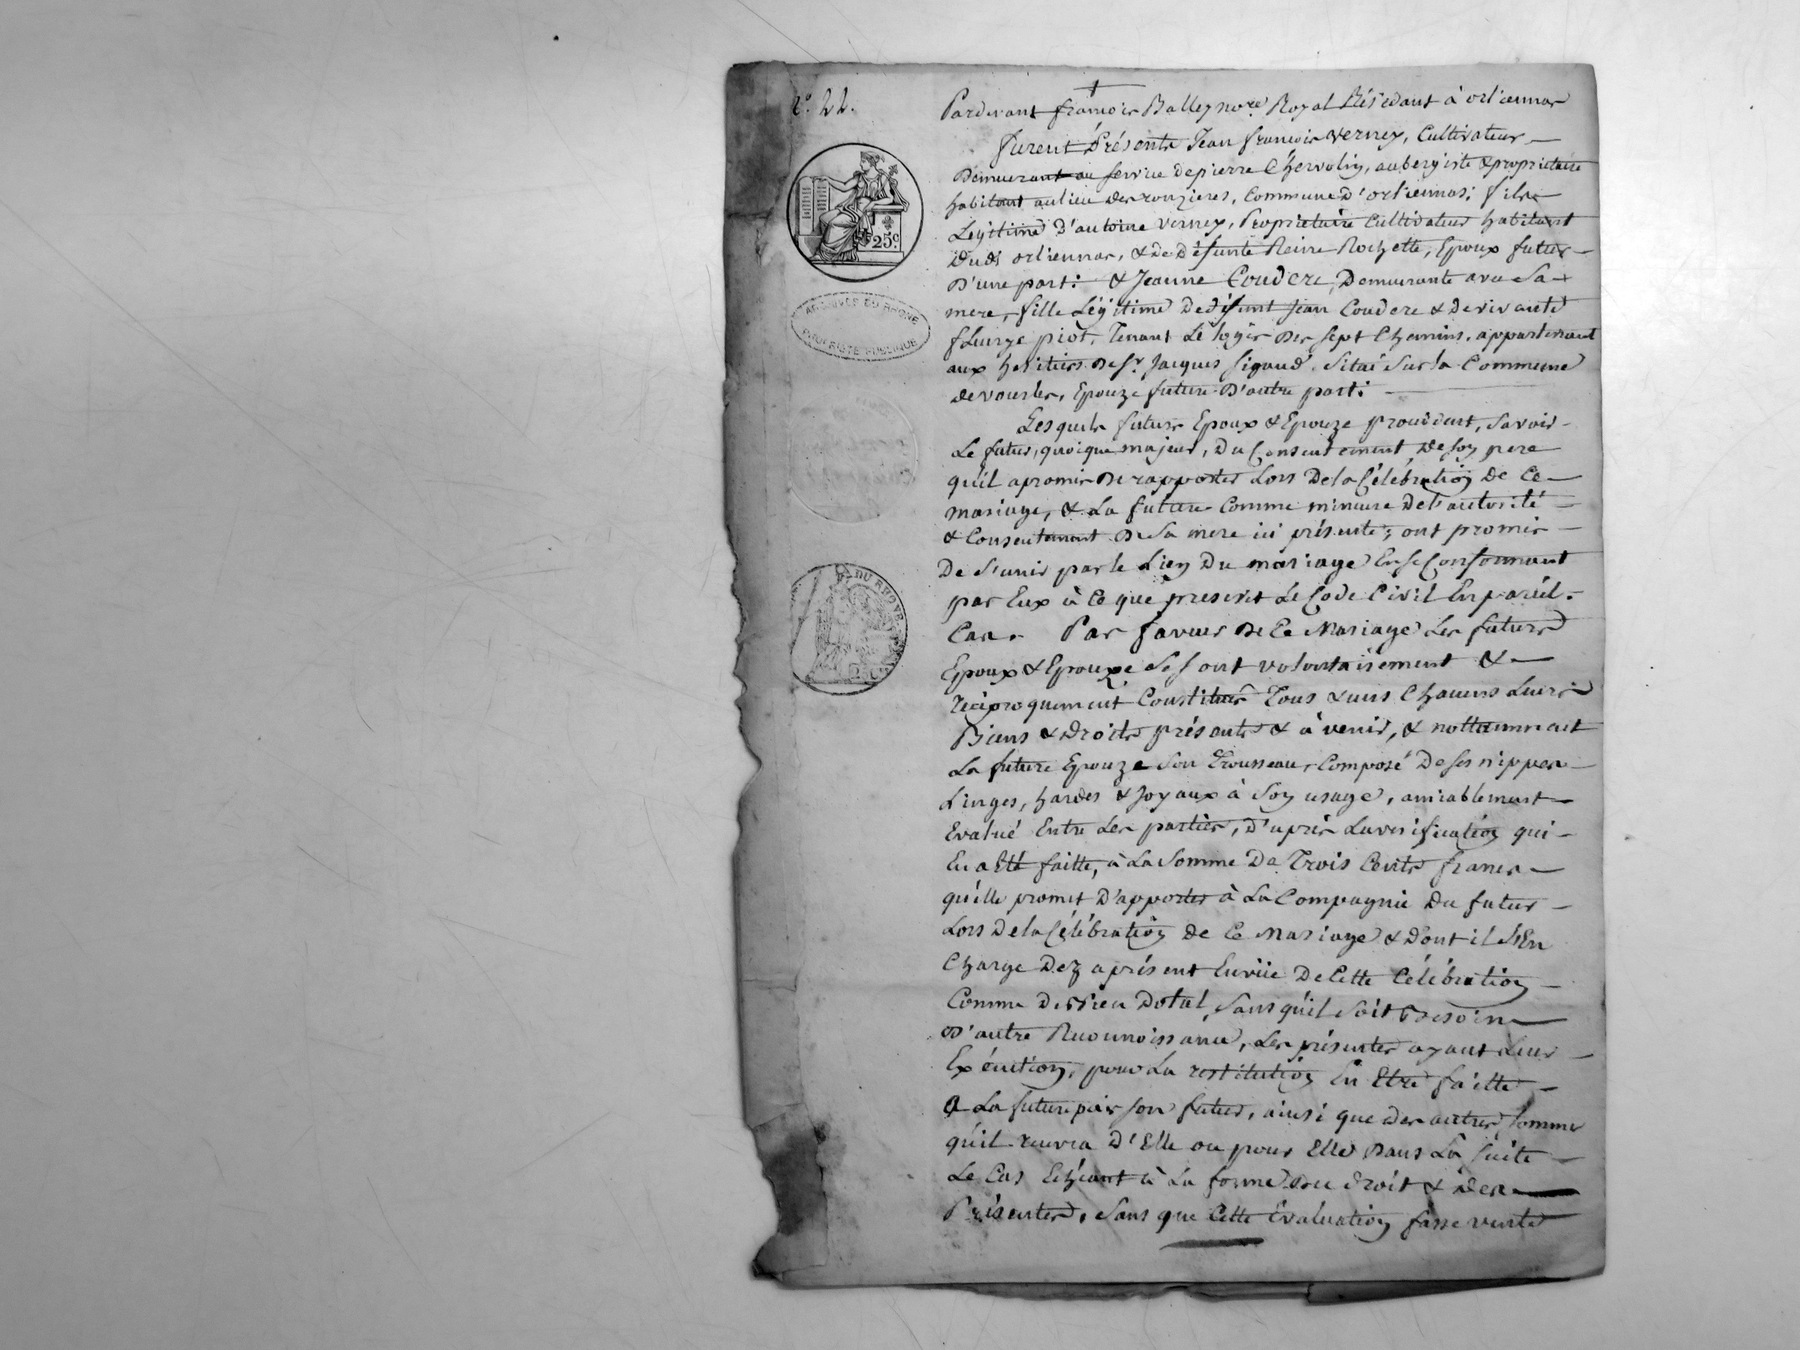 N°. 22.
25c
ARCHIVES DU RHONE
PROPRIETE PUBLIQUE
DU RHONE
Pardevant françois Balley no.re Royal Résidant à orliennas
furent Présents Jean françois verney, Cultivateur
Demeurant au service de pierre Chervolin, aubergiste & propriétaire
habitant au lieu des ronzieres, Commune D'orliennas; fils
Légitime D'antoine verney, Propriétaire Cultivateur habitant
dudt orliennas, & de Défunte Reine Rochette, Epoux futur
D'une part: & Jeanne Couderc, Demeurante avec Sa
mere, fille Légitime De défunt Jean Couderc & de vivante
fleurye piot, Tenant Le logis Des sept Chemins, appartenant
aux heritiers De Sr. Jacques Sigaud, Situé Sur la Commune
de vourles, Epouze future D'autre part:
Lesquels futurs Epoux & Epouze procédant, Savoir
Le futur, quoique majeur, Du Consentement De son pere
qu'il a promis De rapporter Lors De la Célébration de Ce
mariage, & La future Comme mineure De l'autorité
& Consentement De Sa mere ici présente, ont promis
De S'unir par le Lien Du mariage En se Conformant
par Eux à Ce que prescrit Le Code Civil En pareil
Cas. Par faveur De Ce Mariage Les futurs
Epoux & Epouze Se sont volontairement &
réciproquement Constitués Tous & uns Chacuns Leurs
Biens & droits présents & à venir, & nottamment
La future Epouze Son Trousseau, Composé De Ses nippes
Linges, hardes & Joyaux à Son usage, amiablement
Evalué Entre Les parties, D'après La vérification qui
En a Eté faitte, à La Somme De Trois Cents francs
qu'elle promet D'apporter à La Compagnie Du futur
Lors De la Célébration de Ce Mariage & Dont il S'En
Charge Dez à présent En vüe De Cette Célébration
Comme De Bien Dotal, Sans qu'il Soit Besoin
D'autre Reconnoissance, Les présentes ayant Leur
Exécution, pour La restitution En Etre faitte
A La future par Son futur, ainsi que des autres Sommes
qu'il recevra D'Elle ou pour Elle Dans La Suite
Le Cas Echéant à La forme Du droit & Des
Présentes, Sans que Cette évaluation fasse vente